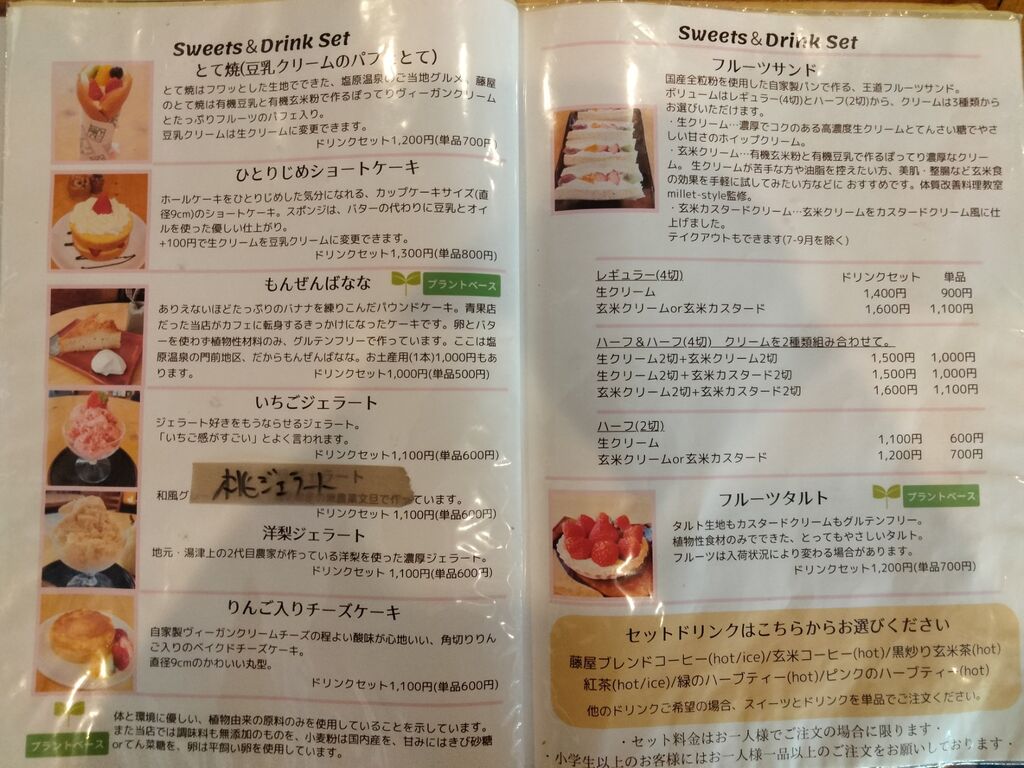 Sweets＆Drink Set
とて焼(豆乳クリームのパフェとて)
とて焼はフワッとした生地でできた、塩原温泉のご当地グルメ。藤屋
のとて焼は有機豆乳と有機玄米粉で作るぽってりヴィーガンクリーム
とたっぷりフルーツのパフェ入り。
豆乳クリームは生クリームに変更できます。
ドリンクセット1,200円(単品700円)
ひとりじめショートケーキ
ホールケーキをひとりじめした気分になれる、カップケーキサイズ(直
径9cm)のショートケーキ。スポンジは、バターの代わりに豆乳とオイ
ルを使った優しい仕上がり。
+100円で生クリームを豆乳クリームに変更できます。
ドリンクセット1,300円(単品800円)
もんぜんばなな プラントベース
ありえないほどたっぷりのバナナを練りこんだパウンドケーキ。青果店
だった当店がカフェに転身するきっかけになったケーキです。卵とバタ
ーを使わず植物性材料のみ、グルテンフリーで作っています。ここは塩
原温泉の門前地区、だからもんぜんばなな。お土産用(1本)1,000円もあ
ります。 ドリンクセット1,000円(単品500円)
いちごジェラート
ジェラート好きをもうならせるジェラート。
「いちご感がすごい」とよく言われます。
ドリンクセット1,100円(単品600円)
桃ジェラート
ート
和風グ 無農薬文旦で作っています。
ドリンクセット 1,100円(単品600円)
洋梨ジェラート
地元・湯津上の2代目農家が作っている洋梨を使った濃厚ジェラート。
ドリンクセット 1,100円(単品600円)
りんご入りチーズケーキ
自家製ヴィーガンクリームチーズの程よい酸味が心地いい、角切りりん
ご入りのベイクドチーズケーキ。
直径9cmのかわいい丸型。
ドリンクセット1,100円(単品600円)
プラントベース
体と環境に優しい、植物由来の原料のみを使用していることを示しています。
また当店では調味料も無添加のものを、小麦粉は国内産を、甘みにはきび砂糖
orてん菜糖を、卵は平飼い卵を使用しています。
Sweets＆Drink Set
フルーツサンド
国産全粒粉を使用した自家製パンで作る、王道フルーツサンド。
ボリュームはレギュラー(4切)とハーフ(2切)から、クリームは3種類から
お選びいただけます。
・生クリーム…濃厚でコクのある高濃度生クリームとてんさい糖でやさ
しい甘さのホイップクリーム。
・玄米クリーム…有機玄米粉と有機豆乳で作るぽってり濃厚なクリー
ム。 生クリームが苦手な方や油脂を控えたい方、美肌・整腸など玄米食
の効果を手軽に試してみたい方などに おすすめです。体質改善料理教室
millet-style監修。
・玄米カスタードクリーム…玄米クリームをカスタードクリーム風に仕
上げました。
テイクアウトもできます(7-9月を除く)
レギュラー(4切) ドリンクセット 単品
生クリーム 1,400円 900円
玄米クリームor玄米カスタード 1,600円 1,100円
ハーフ＆ハーフ(4切) クリームを2種類組み合わせて。
生クリーム2切+玄米クリーム2切 1,500円 1,000円
生クリーム2切+玄米カスタード2切 1,500円 1,000円
玄米クリーム2切+玄米カスタード2切 1,600円 1,100円
ハーフ(2切)
生クリーム 1,100円 600円
玄米クリームor玄米カスタード 1,200円 700円
フルーツタルト プラントベース
タルト生地もカスタードクリームもグルテンフリー。
植物性食材のみでできた、とってもやさしいタルト。
フルーツは入荷状況により変わる場合があります。
ドリンクセット1,200円(単品700円)
セットドリンクはこちらからお選びください
藤屋ブレンドコーヒー(hot/ice)/玄米コーヒー(hot)/黒炒り玄米茶(hot)
紅茶(hot/ice)/緑のハーブティー(hot)/ピンクのハーブティー(hot)
他のドリンクご希望の場合、スイーツとドリンクを単品でご注文ください。
・セット料金はお一人様でご注文の場合に限ります・
・小学生以上のお客様にはお一人様一品以上のご注文をお願いしております・